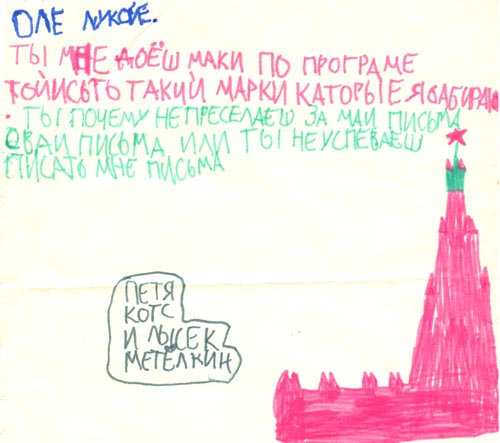 ОЛЕ ЛУКОЕ.
ТЫ МНЕ ДОЁШ МАКИ ПО ПРОГРАМЕ
ТОЙИСЬТЬ ТАКИЙ МАРКИ КАТОРЫЕ Я САБИРАЮ
. ТЫ ПОЧЕМУ НЕ ПРЕСЕЛАЕШ ЗА МАИ ПИСЬМА
СВАИ ПИСЬМА ИЛИ ТЫ НЕ УСПЕВАЕШ
ПИСАТЬ МНЕ ПИСЬМА
ПЕТЯ
КОТС
И ЛЫСЕК
МЕТЁЛКИН